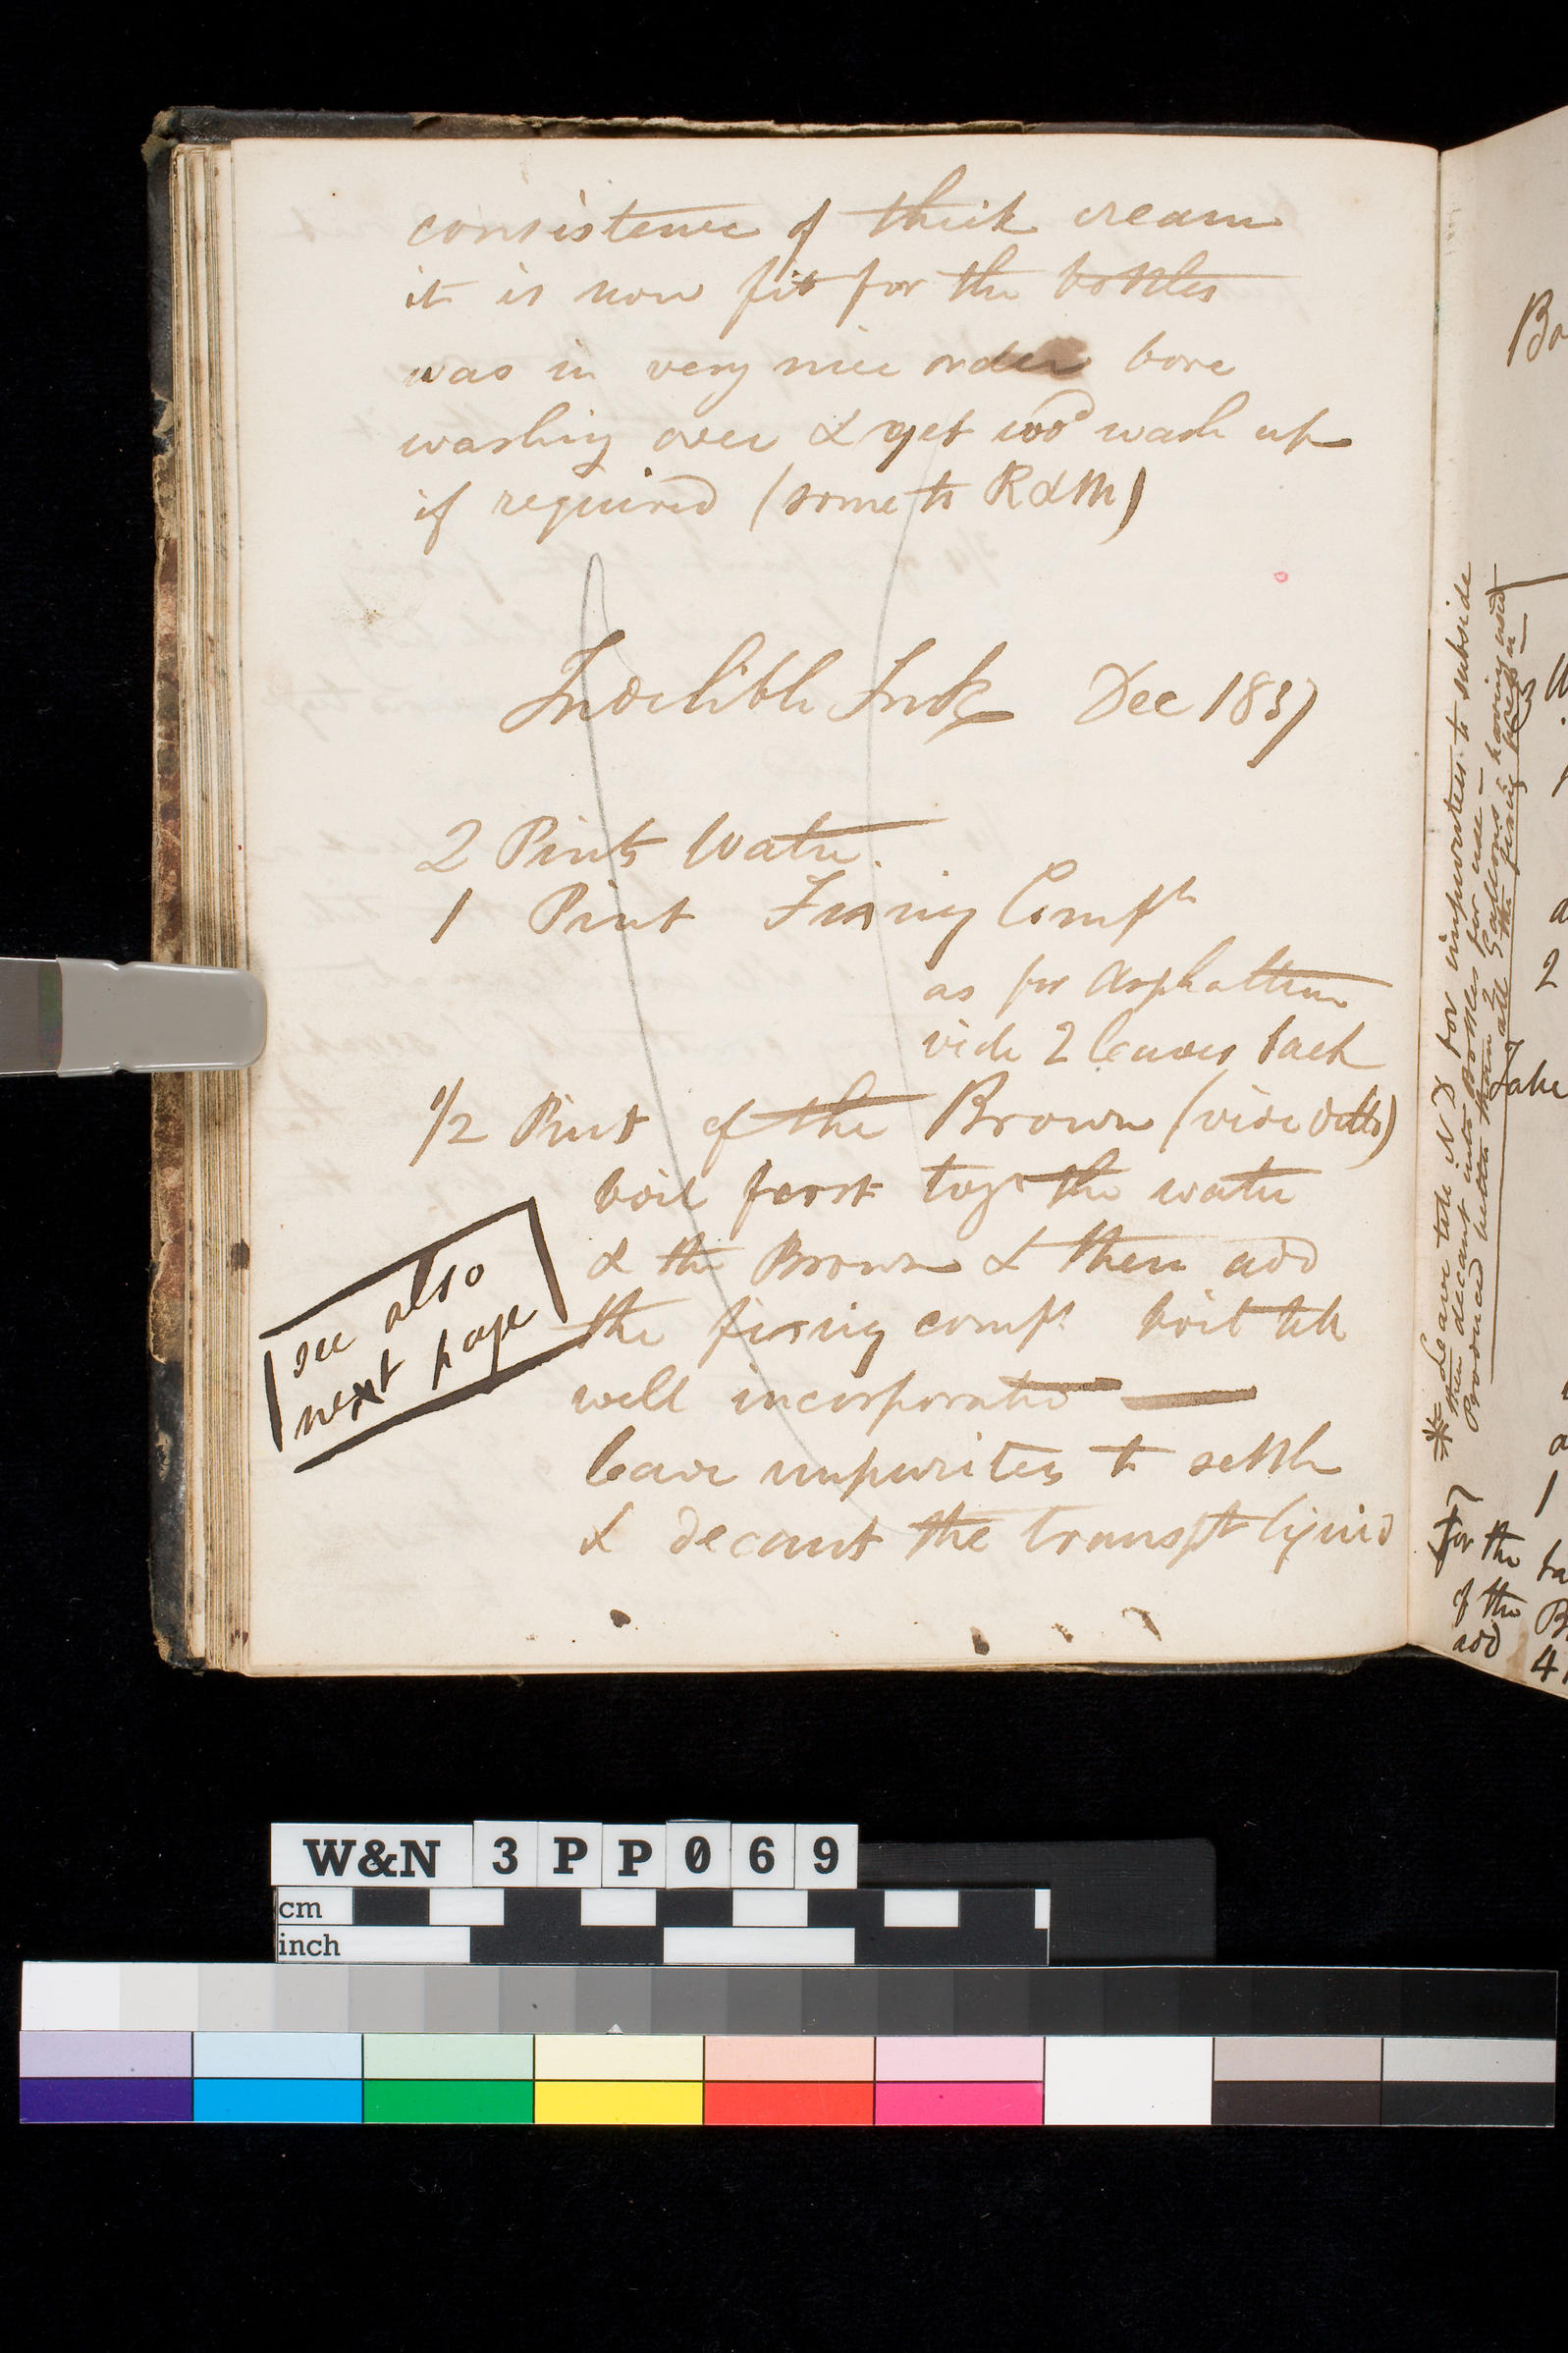 consistence of thick cream
it is now fit for the bottles
was in very nice order bore
washing over & yet wod wash up
if required (some to R&M)
Indelible Ink Dec 1837
2 Pints Water.
1 Pint Fixing Compn
as for Asphaltum
vide 2 leaves back
1/2 Pint of the Brown (vide ditto)
boil first togr the water
& the Brown & then add
the fixing compn boil till
well incorporated —
leave impurities to settle
& decant the transpt liquid
see also
next page
* Leave till N D for impurities to subside
then decant into Bottles for use —
Produced better than 2 Gallons having used
all the fixing
for the
of the
add
Take
2
1
W&N 3PP069
cm
inch